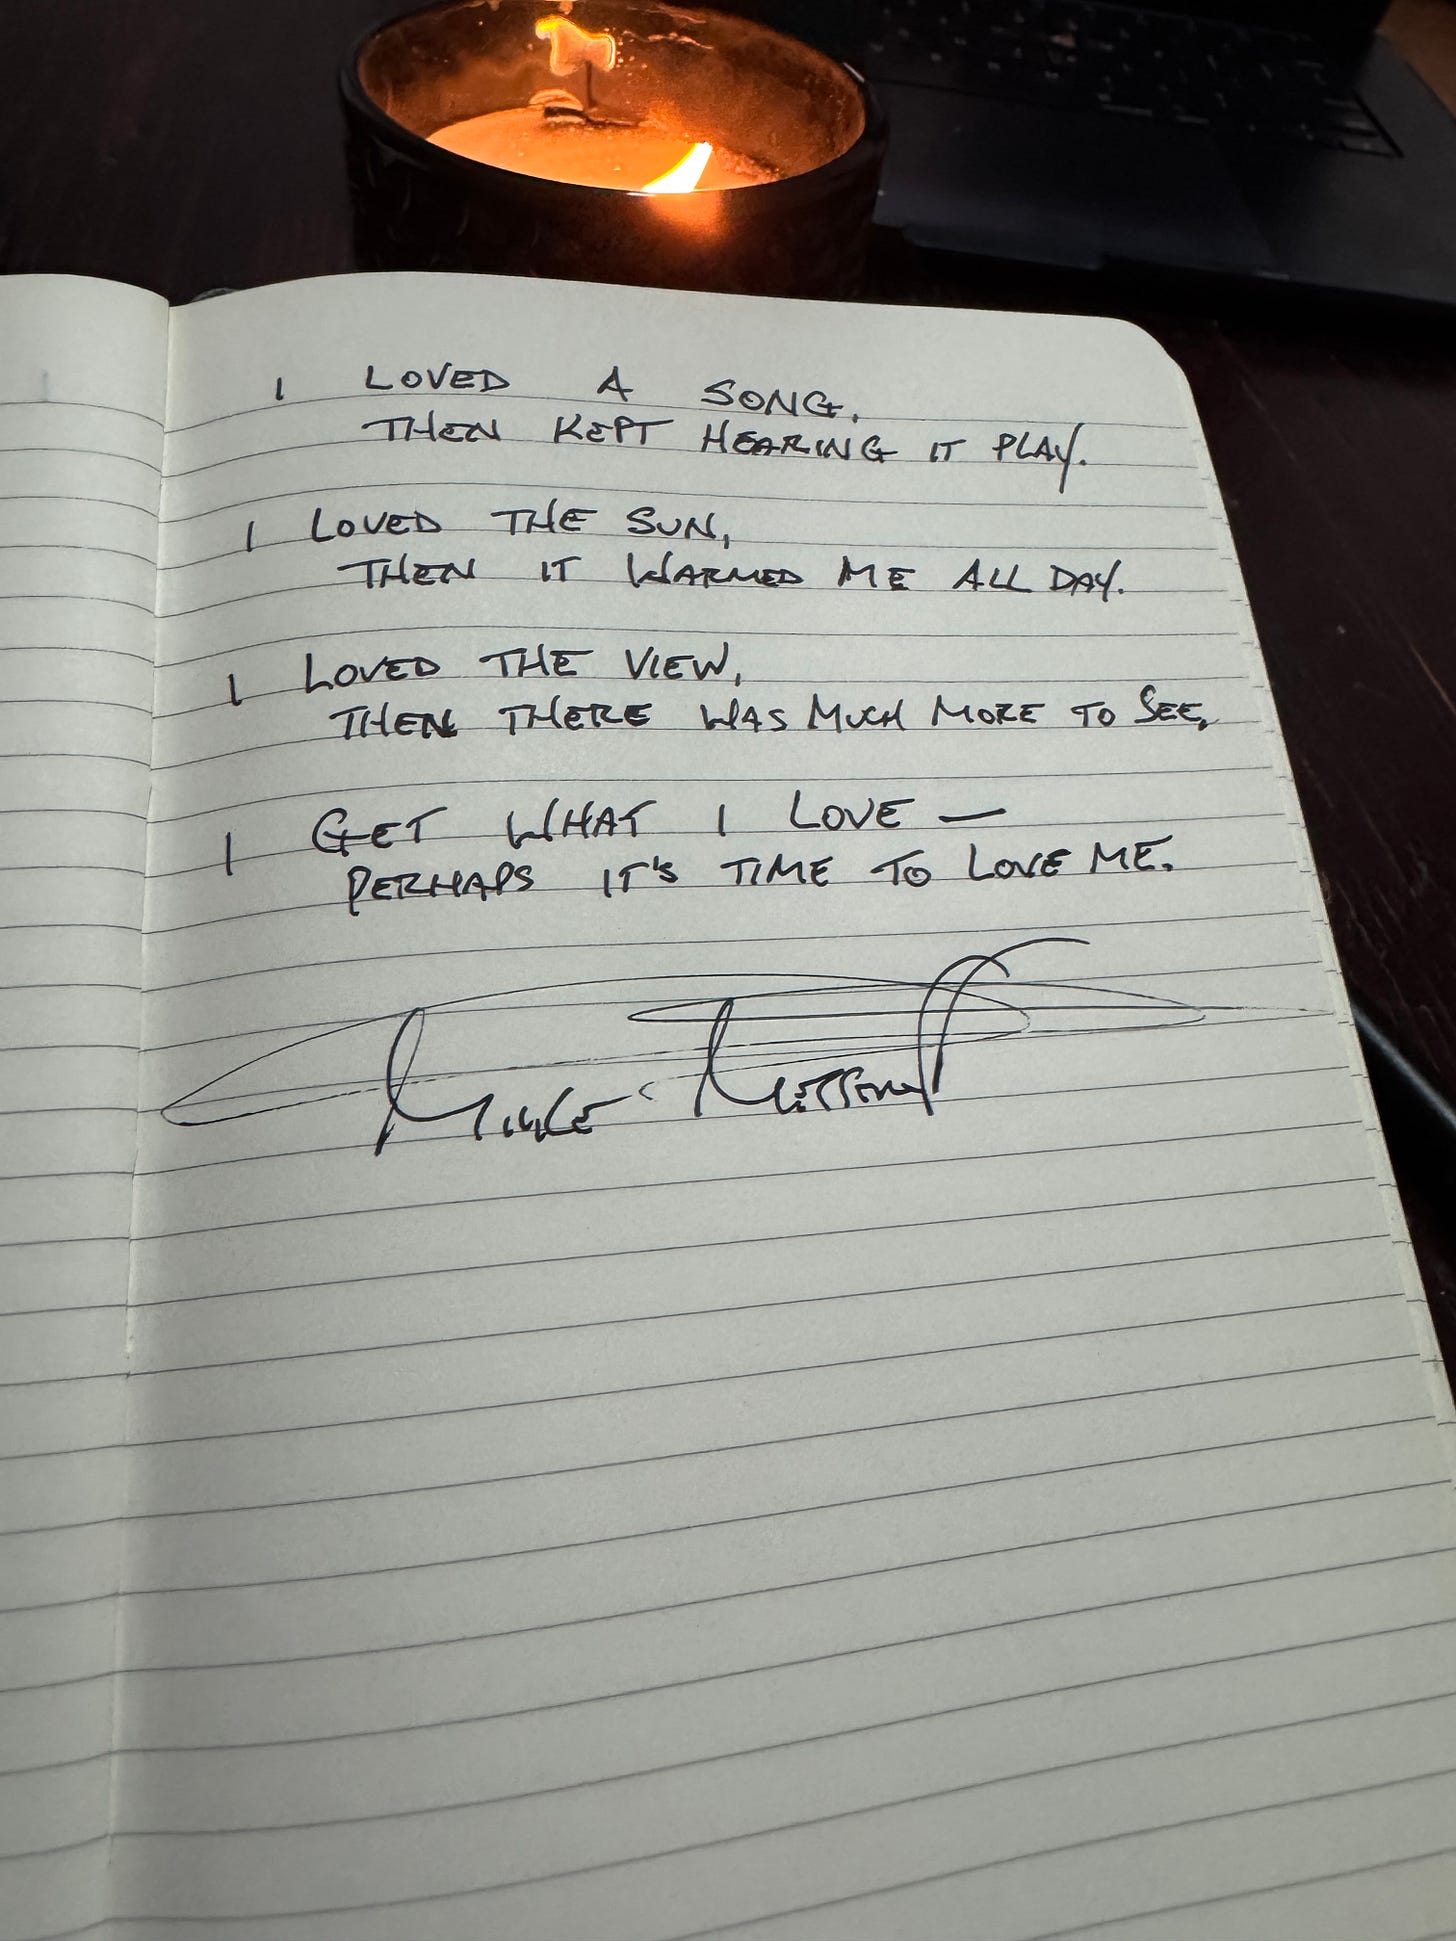 I LOVED A SONG,
THEN KEPT HEARING IT PLAY.
I LOVED THE SUN,
THEN IT WARMED ME ALL DAY.
I LOVED THE VIEW,
THEN THERE WAS MUCH MORE TO SEE,
I GET WHAT I LOVE —
PERHAPS IT'S TIME TO LOVE ME.